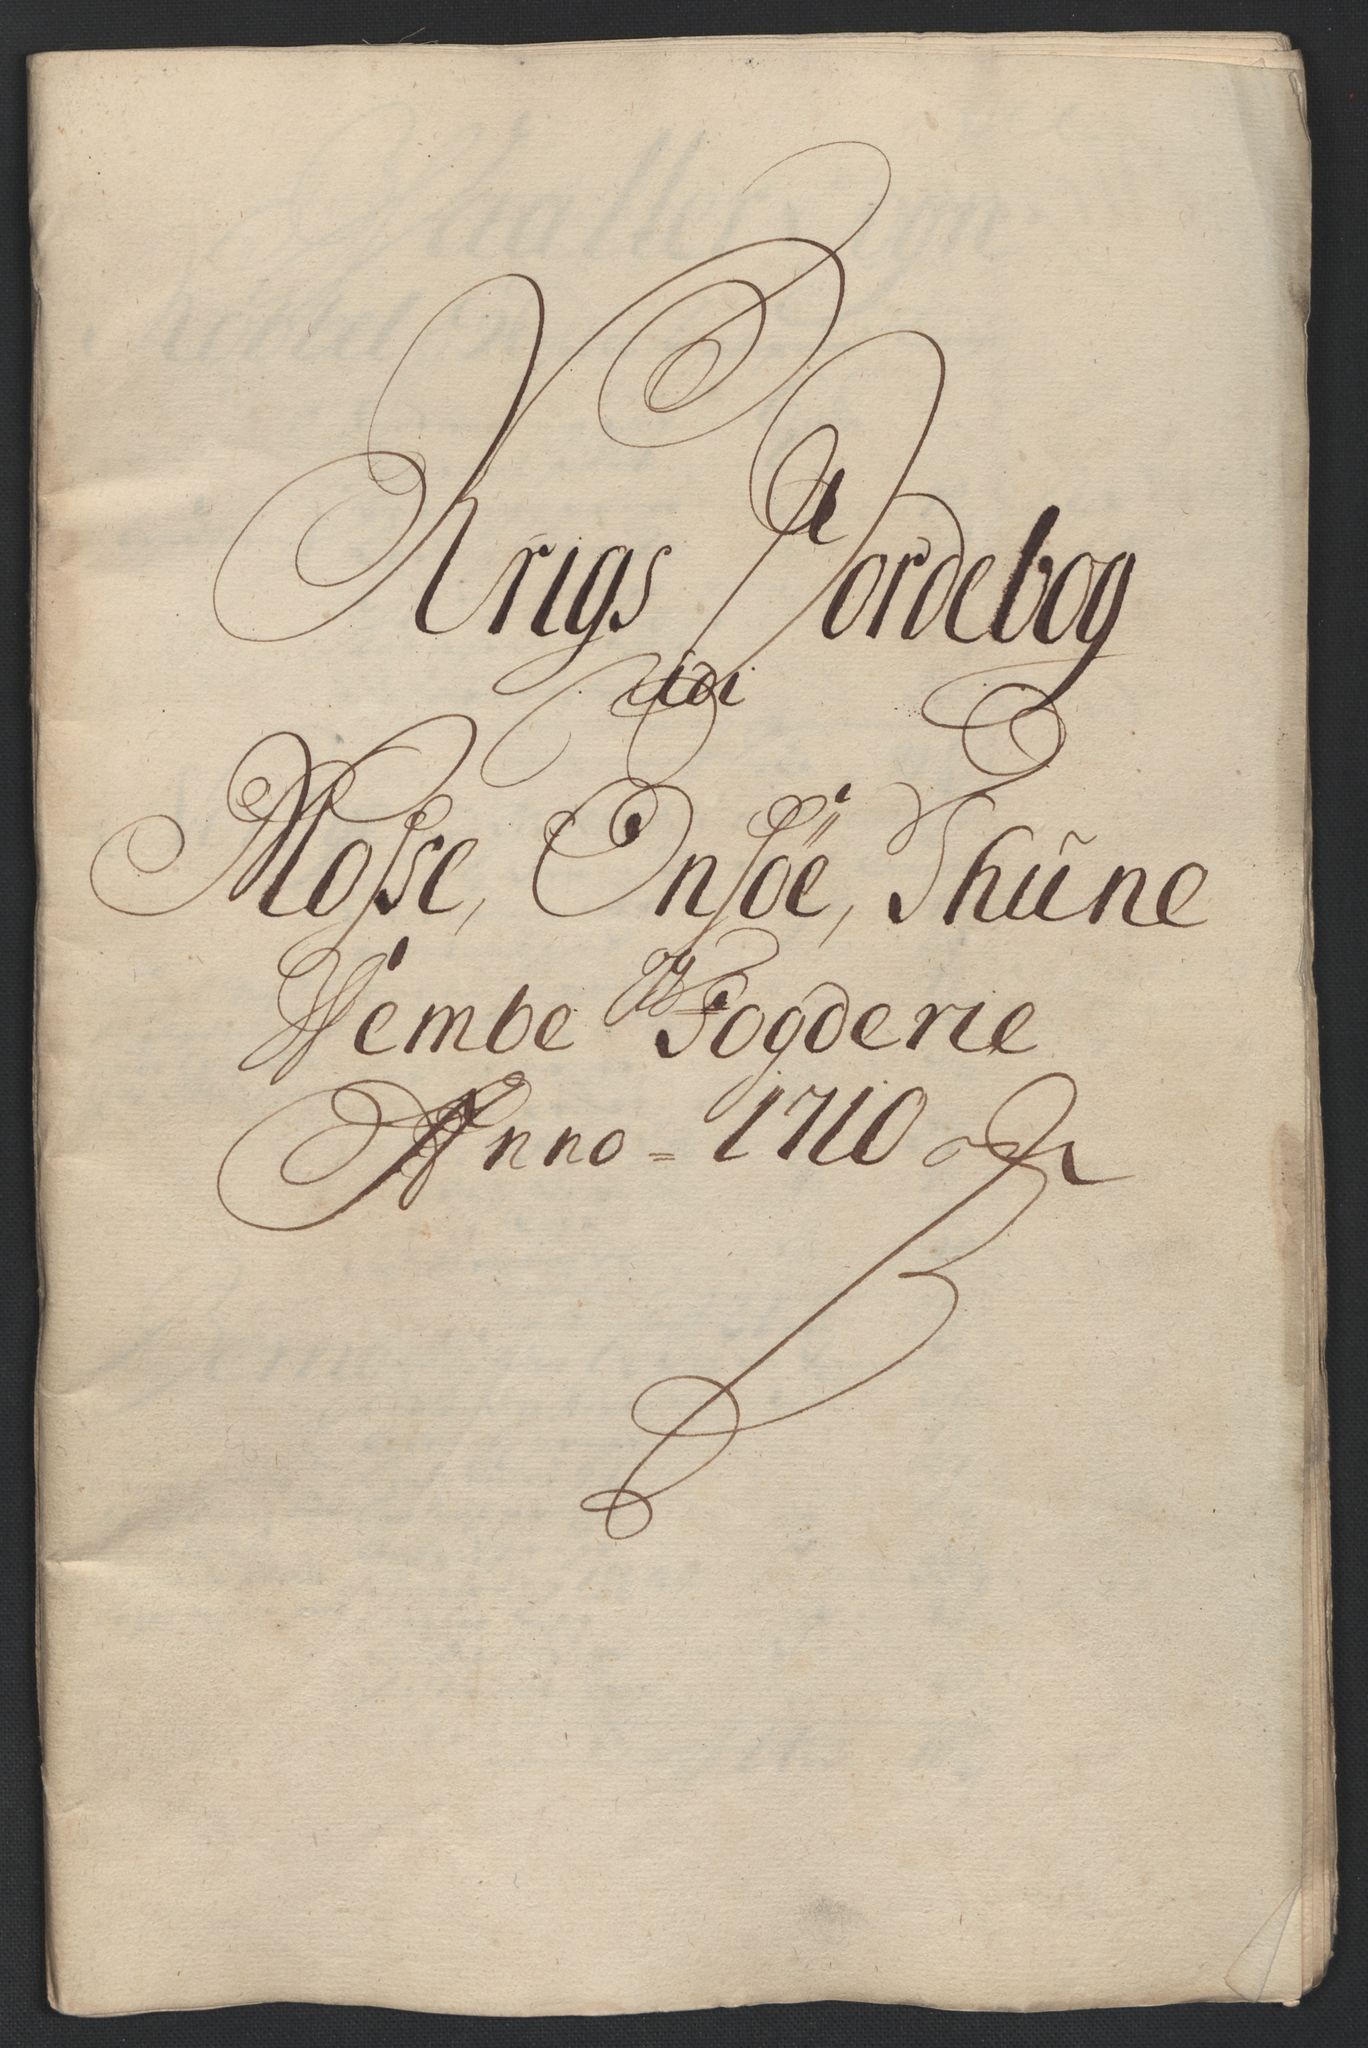 Krigs Jordebog
udi
Mosse, Onsöe, Thune
og
Wembe Fogderie
Anno = 1710